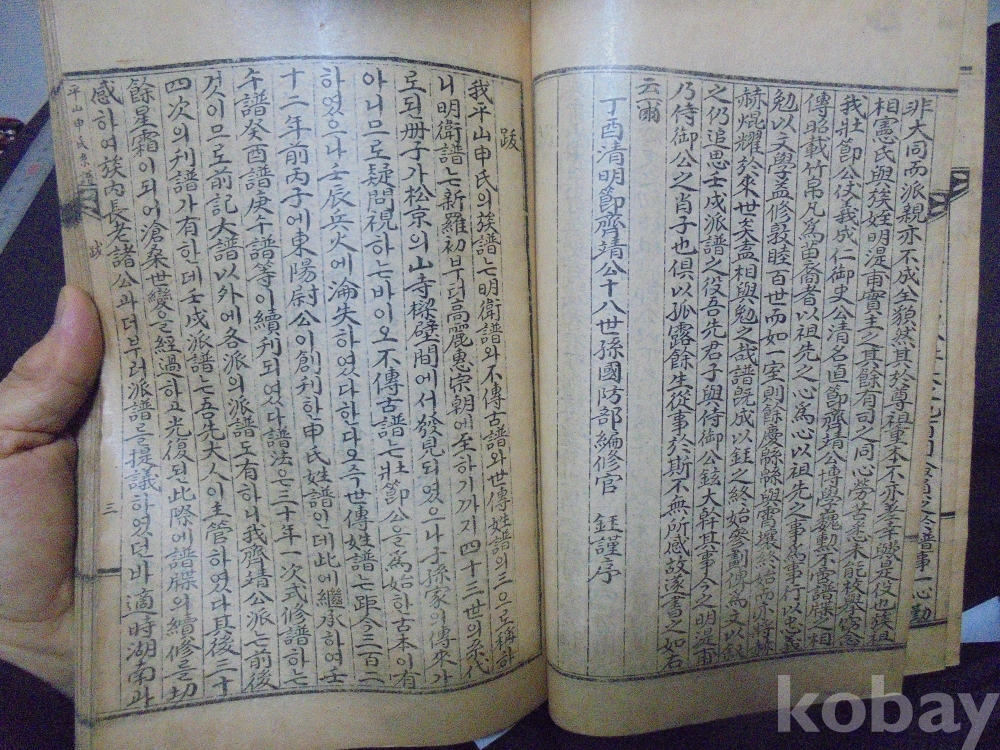 非大同而派親亦不成全貌然其於尊祖重本不亦美幸歟是役也族祖
相憲氏與族姪明湜甫實主之其餘有司之同心勞苦未能枚擧窃念
我壯節公仗義成仁御史公淸名直節齊靖公博學巍勳不啻譜牒之相
傳昭載竹帛凡爲苗裔者以祖先之心爲心以祖先之事爲事行以忠義
勉以文學益修敦睦百世而如一室則餘慶縣縣與霄壤終始而亦將赫
赫焜耀於來世矣盍相與勉之哉譜旣成以鉦之終始參劃傅爲文以
之仍追思壬戌派譜之役吾先君子與侍御公鉉大幹其事今之明湜甫
乃侍御公之肖子也俱以孤露餘生從事於斯不無所感故遂書之如右
云爾
丁酉淸明節齊靖公十八世孫國防部編修官 鉦謹序
跋
我平山申氏의族譜는明衛譜와不傳古譜와世傳姓譜의三으로稱하
니明衛譜는新羅初부터高麗惠宗朝에至하기까지四十三世의系代
로된册子가松京의山寺樑壁間에서發見되였으나子孫家의傳來가
아니므로疑問視하는바이오不傳古譜는壯節公을爲始한古本이有
하였으나壬辰兵火에淪失하였다한다오주世傳姓譜는距今三百二
十二年前丙子에東陽尉公이創刊한申氏姓譜인데此에繼承하여壬
午譜癸酉譜庚午譜等이續刊되였다譜法은三十年一次式修譜하는
것이므로前記大譜以外에各派의派譜도有하니我齊靖公派는前後
四次의刊譜가有한데壬戌派譜는吾先大人이主管하였다其後三十
餘星霜이되어滄桑世變을經過하고光復된此際에譜牒의續修를切
感하여族內長老諸公과더부러派譜를提議하였던바適時湖南과
平山申氏系譜 跋 三
kobay